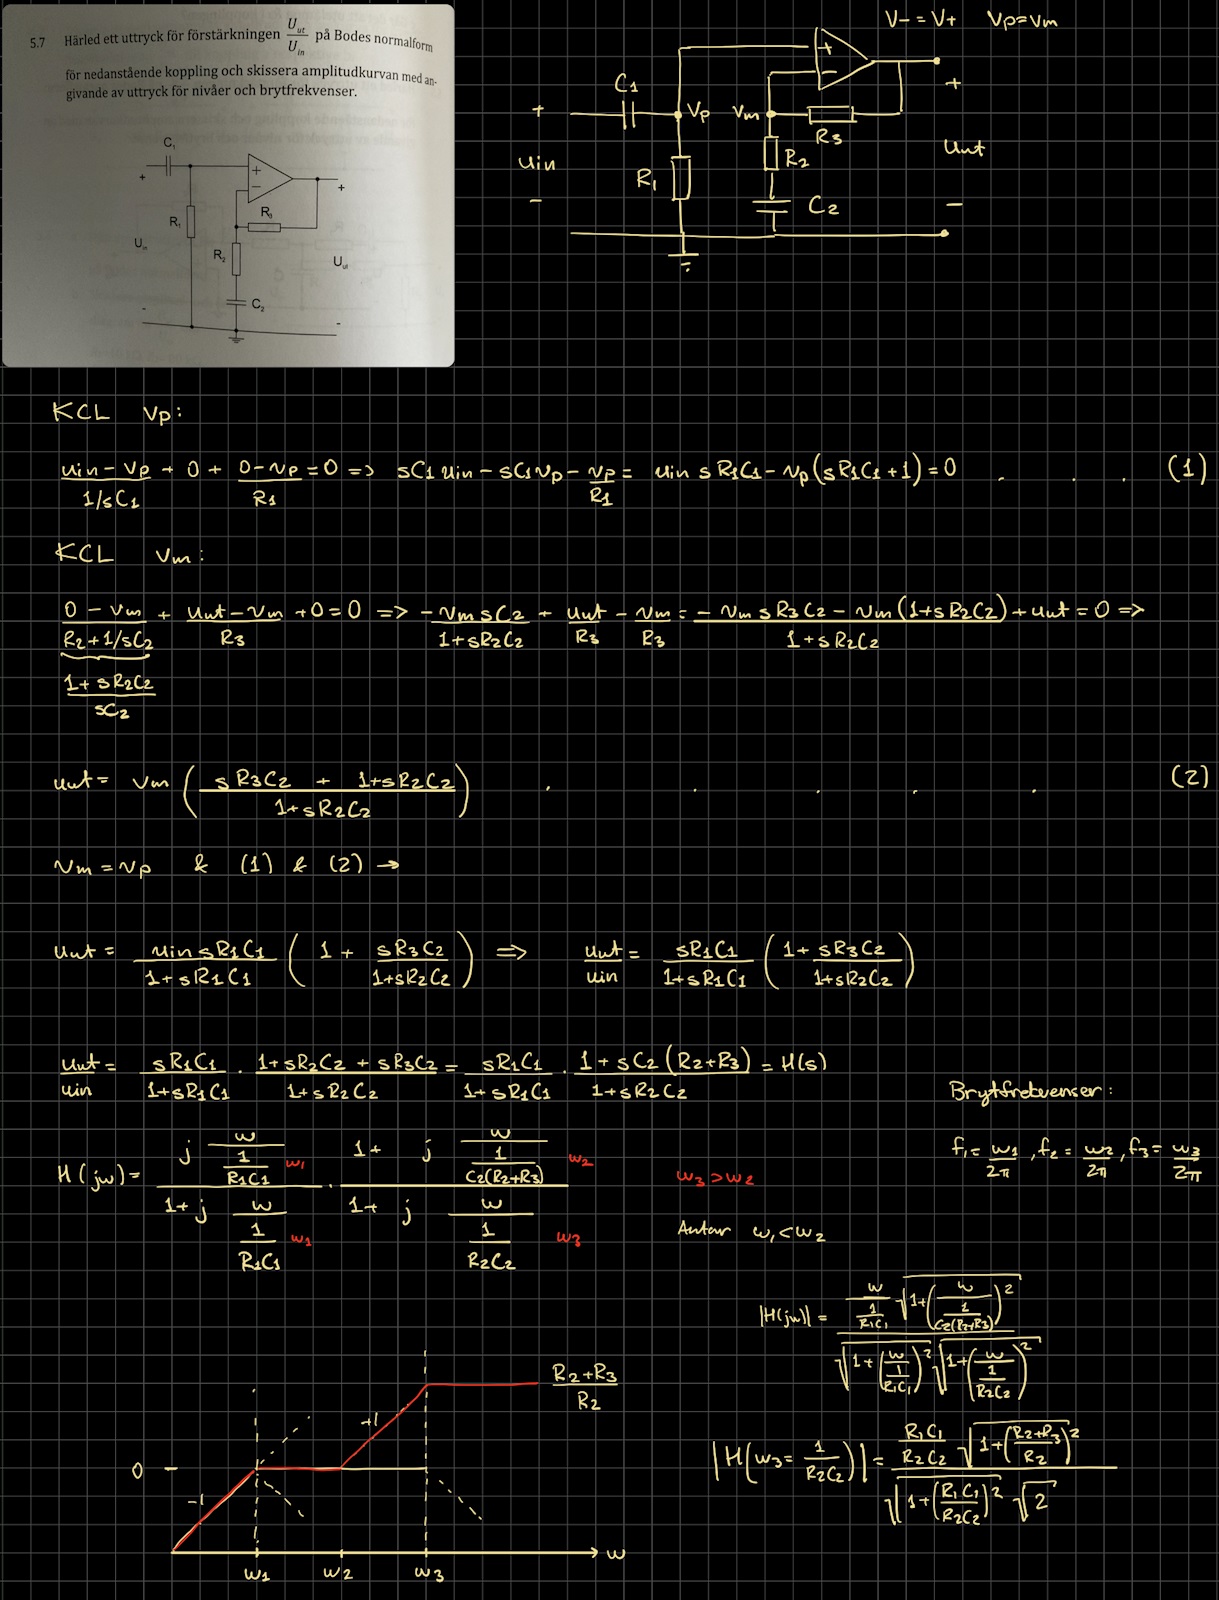 5.7 Härled ett uttryck för förstärkningen U_ut/U_in på Bodes normalform
för nedanstående koppling och skissera amplitudkurvan med an-
givande av uttryck för nivåer och brytfrekvenser.
C₁
+
+
−
+
R₃
R₁
U_in
R₂
U_ut
C₂
-
-
V- = V+ Vp=Vm
C1
+
−
+
Vp
Vm
+
R3
uin
R1
R2
uut
−
C2
−
KCL Vp:
(uin − Vp)/(1/sC1) + 0 + (0−Vp)/R1 = 0 => sC1 uin − sC1Vp − Vp/R1 = uin sR1C1 − Vp(sR1C1+1) = 0 . . . (1)
KCL Vm:
(0 − Vm)/(R2+1/sC2) + (uut−Vm)/R3 + 0 = 0 => −VmsC2/(1+sR2C2) + uut/R3 − Vm/R3 = (− VmsR3C2 − Vm(1+sR2C2))/(1+sR2C2) + uut = 0 =>
(1+sR2C2)/sC2
uut = Vm ((sR3C2 + 1+sR2C2)/(1+sR2C2)) . . . . . (2)
Vm = Vp & (1) & (2) →
uut = (uin sR1C1)/(1+sR1C1) (1 + sR3C2/(1+sR2C2)) => uut/uin = sR1C1/(1+sR1C1) (1 + sR3C2/(1+sR2C2))
uut/uin = sR1C1/(1+sR1C1) · (1+sR2C2 + sR3C2)/(1+sR2C2) = sR1C1/(1+sR1C1) · (1+sC2(R2+R3))/(1+sR2C2) = H(s)
Brytfrekvenser:
f1 = w1/2π , f2 = w2/2π , f3 = w3/2π
H(jw) = (j w/(1/R1C1) w1)/(1+j w/(1/R1C1) w1) · (1+ j w/(1/C2(R2+R3)) w2)/(1+ j w/(1/R2C2) w3)
w3 > w2
Antar w1 < w2
|H(jw)| = (w/(1/R1C1) √(1+(w/(1/C2(R2+R3)))²))/(√(1+(w/(1/R1C1))²) √(1+(w/(1/R2C2))²))
(R2+R3)/R2
+1
0
−1
|H(w3 = 1/R2C2)| = (R1C1/R2C2 √(1+((R2+R3)/R2)²))/(√(1+(R1C1/R2C2)²) √2)
w
w1 w2 w3